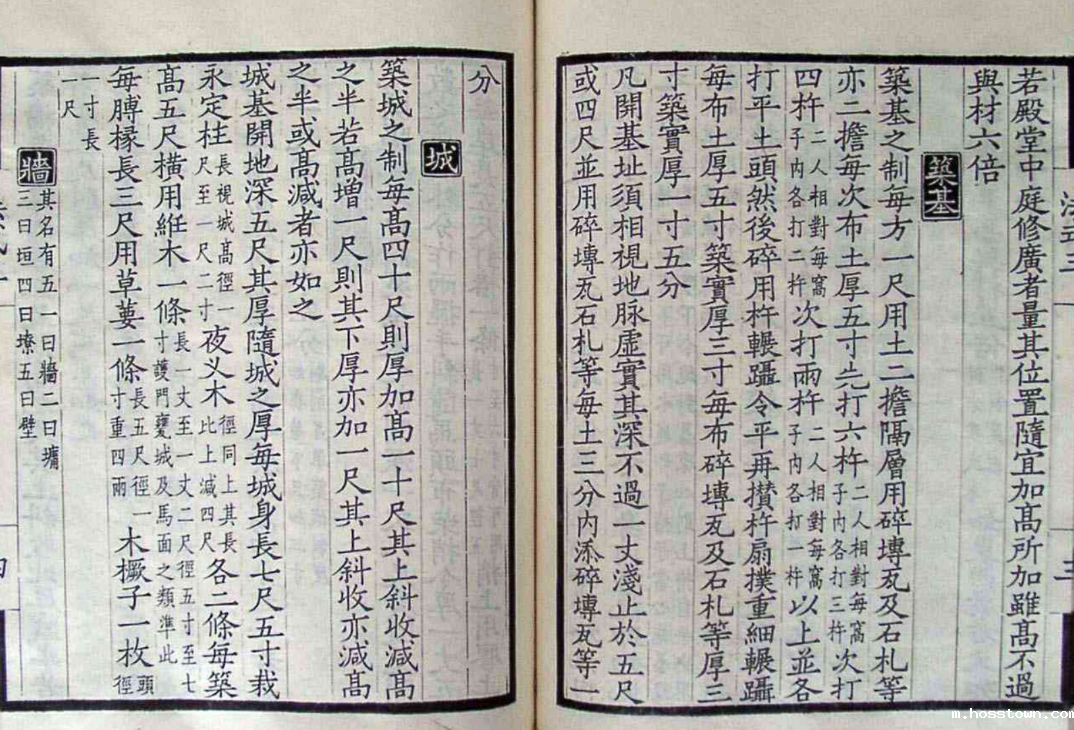 若殿堂中庭修廣者量其位置隨宜加髙所加雖髙不過
與材六倍
築基
築基之制每方一尺用土二擔隔層用碎塼瓦及石札等
亦二擔每次布土厚五寸先打六杵二人相對每窩子內各打三杵次打
四杵二人相對每窩子內各打二杵次打兩杵二人相對每窩子內各打一杵以上並各
打平土頭然後碎用杵輾躡令平再攢杵扇撲重細輾躡
每布土厚五寸築實厚三寸每布碎塼瓦及石札等厚三
寸築實厚一寸五分
凡開基址須相視地脉虛實其深不過一丈淺止於五尺
或四尺並用碎塼瓦石札等每土三分內添碎塼瓦等一
分
城
築城之制每髙四十尺則厚加髙一十尺其上斜收減髙
之半若髙增一尺則其下厚亦加一尺其上斜收亦減髙
之半或髙減者亦如之
城基開地深五尺其厚隨城之厚每城身長七尺五寸栽
永定柱長視城髙徑一尺至一尺二寸夜义木徑同上其長比上減四尺各二條每築
髙五尺橫用絍木一條長一丈至一丈二尺徑五寸至七寸護門甕城及馬面之類準此
每膊椽長三尺用草葽一條長五尺徑一寸重四兩木橛子一枚頭徑
一寸長一尺
牆其名有五一曰牆二曰墉三曰垣四曰㙩五曰壁
法式三
三
四
m.hosstown.com